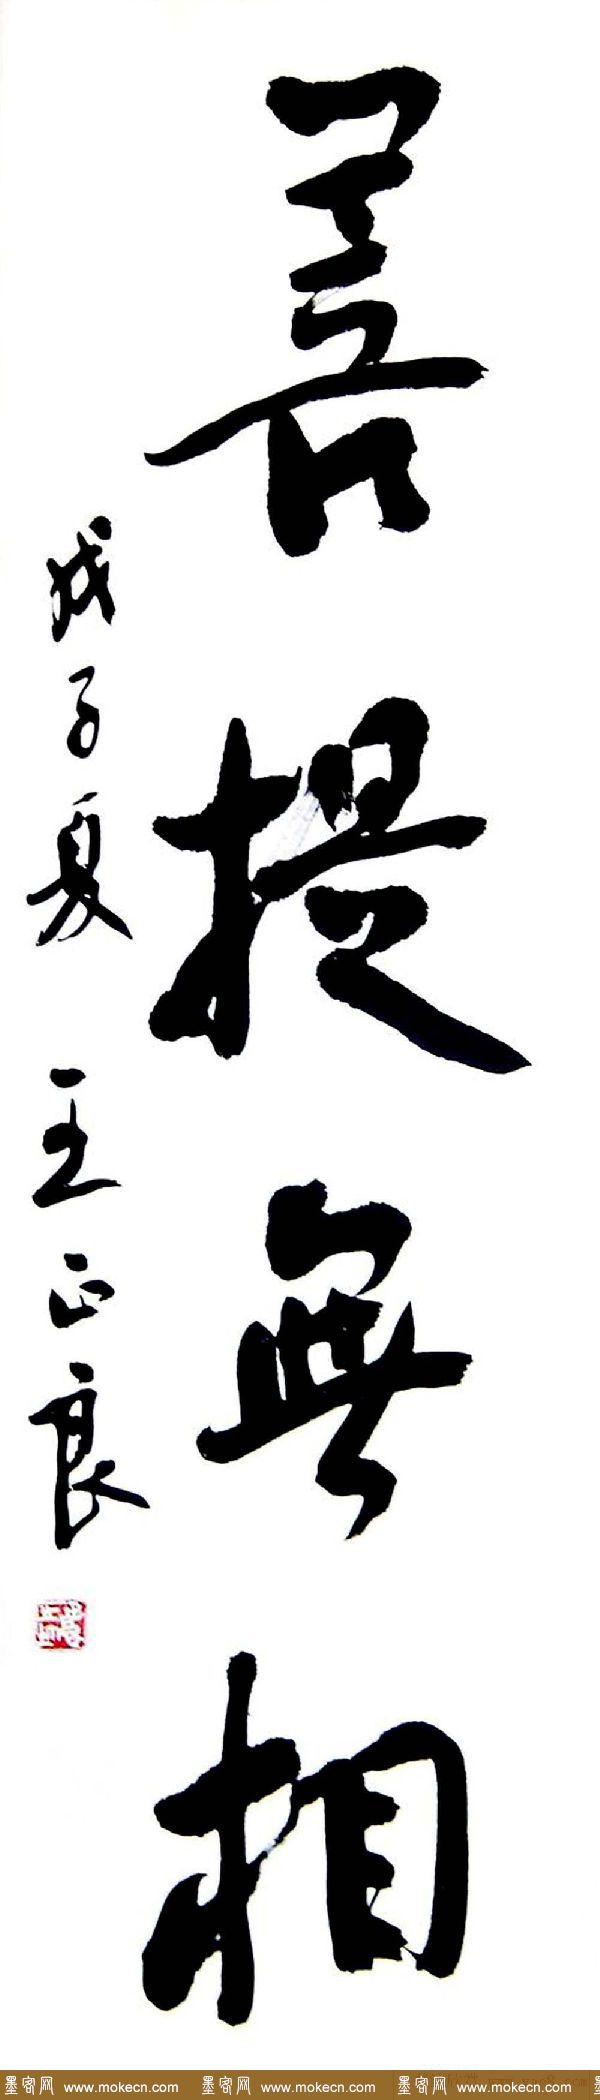 菩提無相
戊子夏 王正良
墨客网 www.mokecn.com 墨客网 www.mokecn.com 墨客网 www.mokecn.com